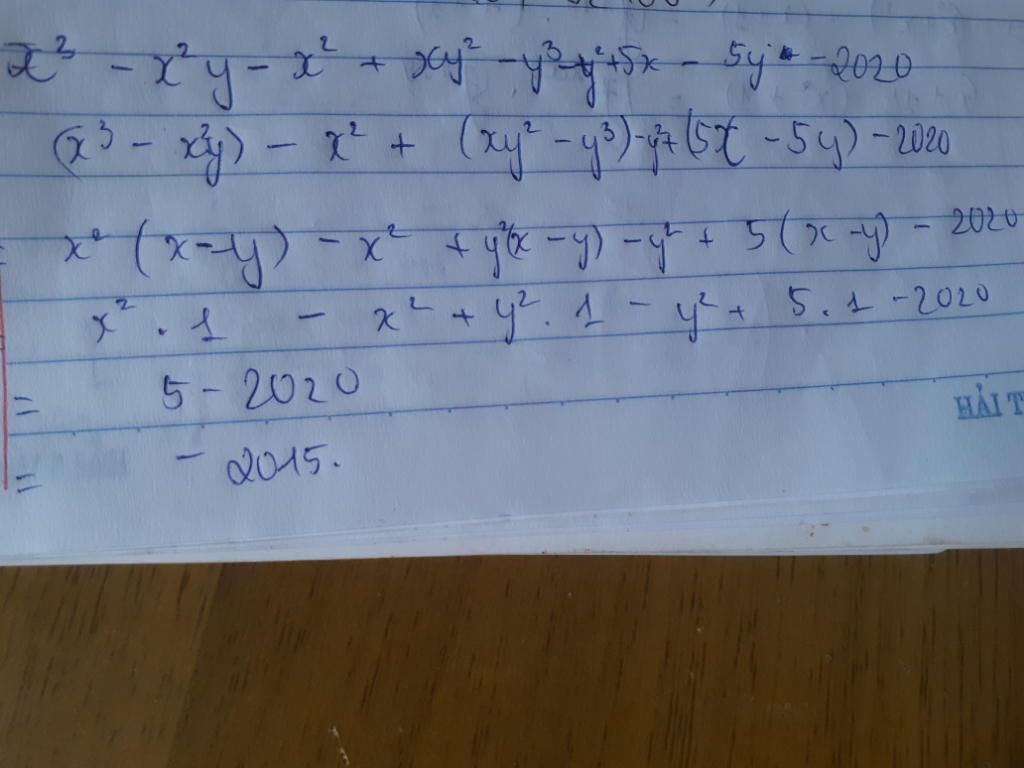 x³ - x²y - x² + xy² - y³ - y² + 5x - 5y - 2020
(x³ - x²y) - x² + (xy² - y³) - y² + (5x - 5y) - 2020
= x² (x - y) - x² + y²(x - y) - y² + 5 (x - y) - 2020
x² . 1 - x² + y² . 1 - y² + 5 . 1 - 2020
= 5 - 2020
HẢI T
= - 2015.